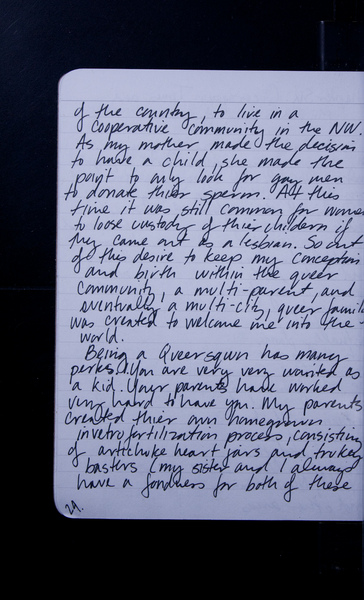 of the country, to live in a
cooperative community in the NW.
As my mother made the decision
to have a child, she made the
point to only look for gay men
to donate thier sperm. At this
time it was still common for women
to loose custody of thier childern if
they came out as a lesbian. So out
of this desire to keep my conception
and birth within the queer
community, a multi-parent, and
eventually a multi-city, queer family
was created to welcome me into the
world.
Being a Queerspawn has many
perks! You are very very wanted as
a kid. Your parents have worked
very hard to have you. My parents
created thier own homegrown
invetro fertilization process, consisting
of artichoke heart jars and turkey
basters (my sister and I always
have a fondness for both of these
29.